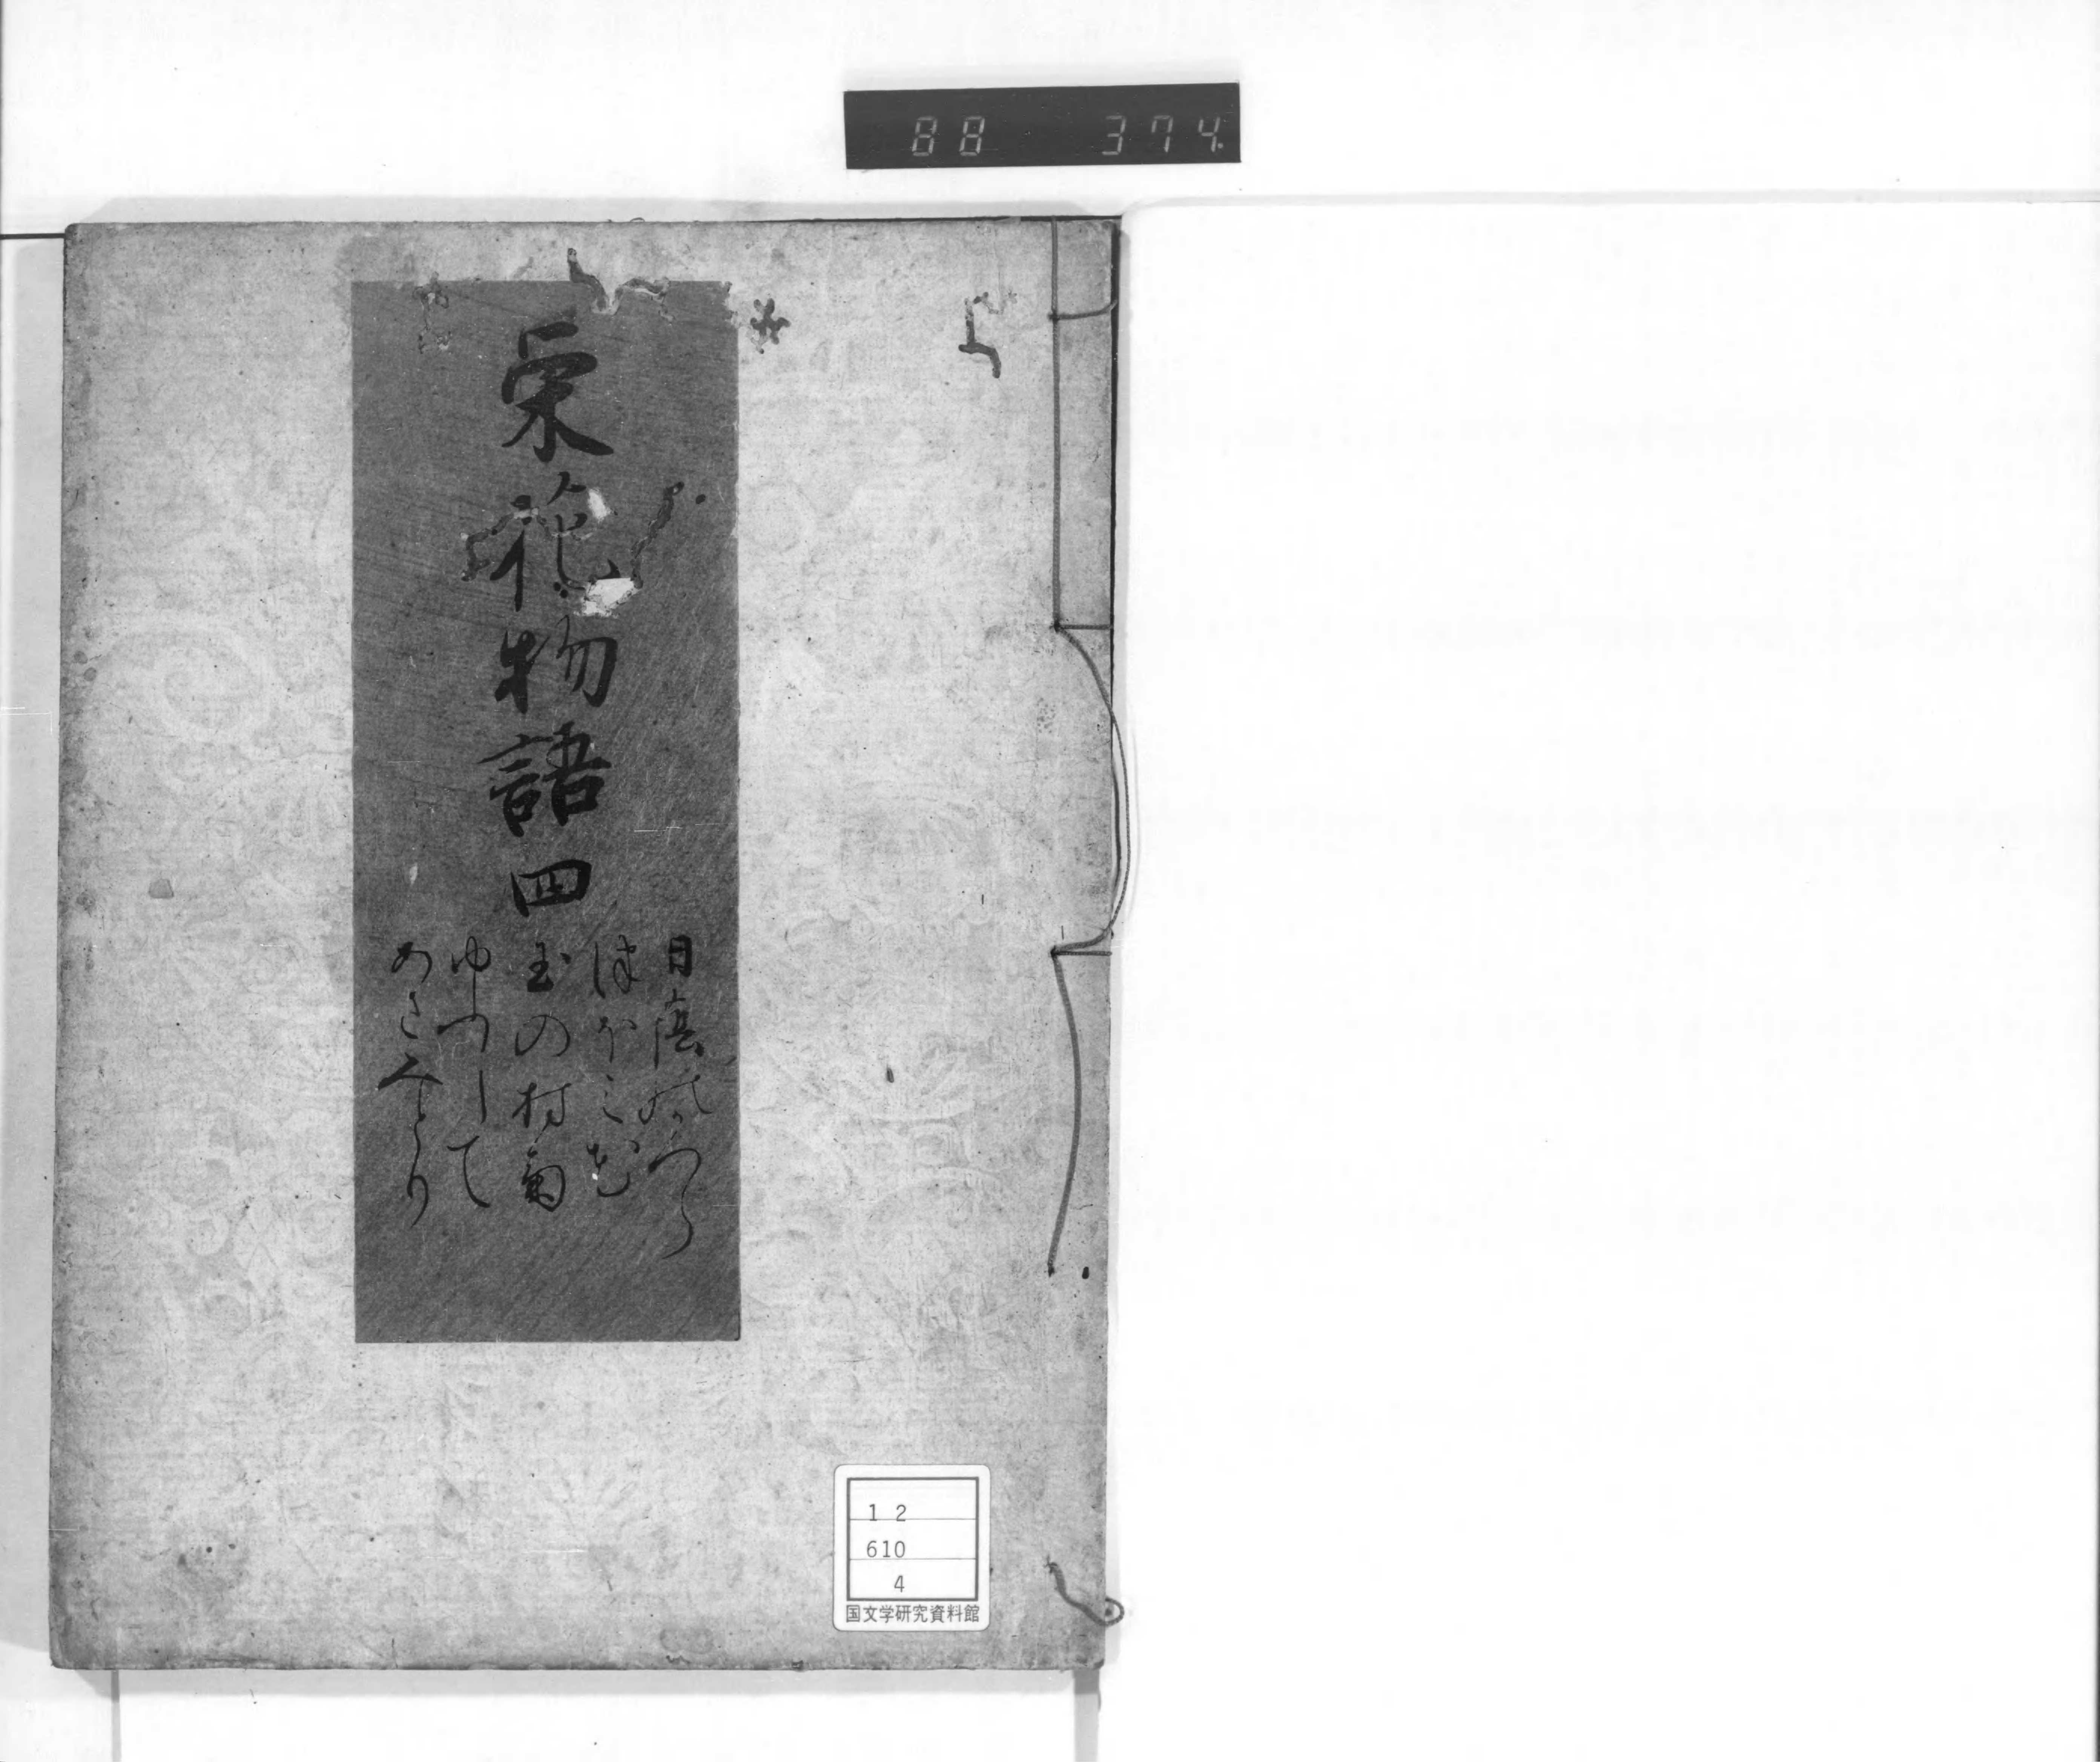 88 374.
栄花物語四
日蔭のかつら
つほみ花
玉の村菊
ゆふして
あさみとり
12
610
4
国文学研究資料館